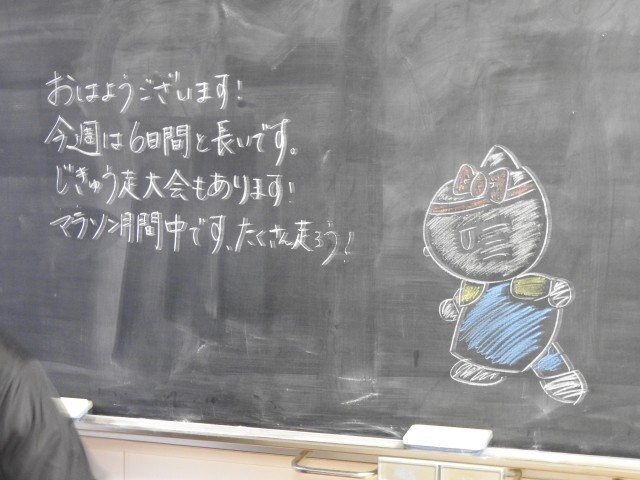 おはようございます!
今週は6日間と長いです。
じきゅう走大会もあります!
マラソン月間中です、たくさん走ろう!